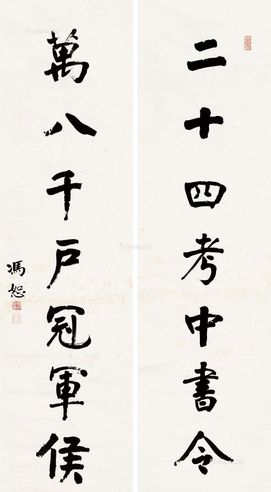 二十四考中書令
萬八千戶冠軍侯
馮恕